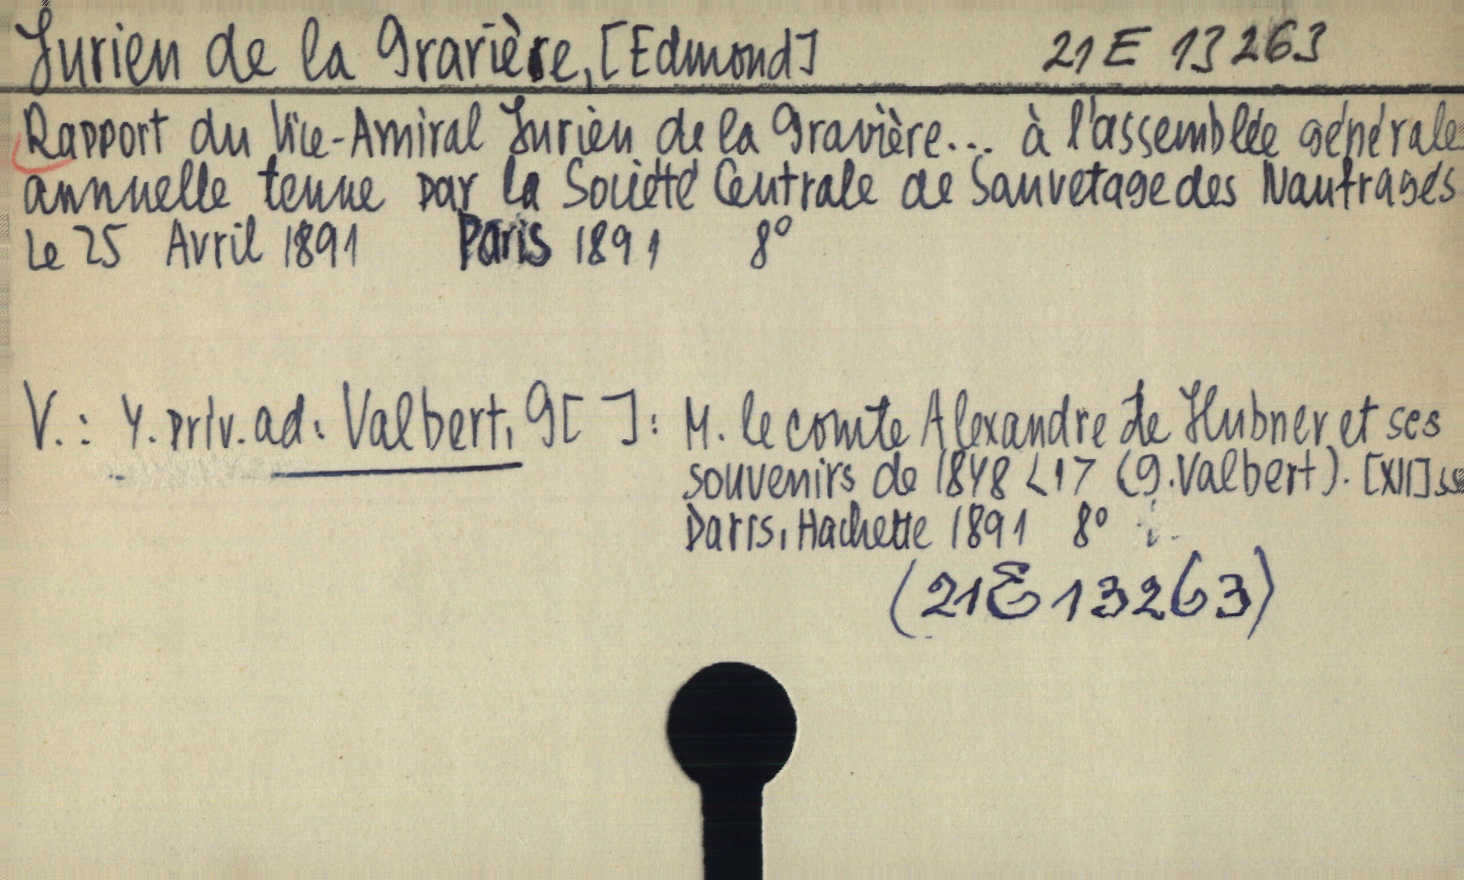 Jurien de la Gravière, [Edmond] 21 E 13263
Rapport du Vice-Amiral Jurien de la Gravière... à l'assemblée générale
annuelle tenue par la Société Centrale de Sauvetage des Naufragés
Le 25 Avril 1891 Paris 1891 8°
V.: Y. priv. ad. Valbert, G[ ]: M. le comte Alexandre de Hubner et ses
souvenirs de 1848 <17 (G. Valbert). [XII] ss
Paris, Hachette 1891 8°
(21E13263)